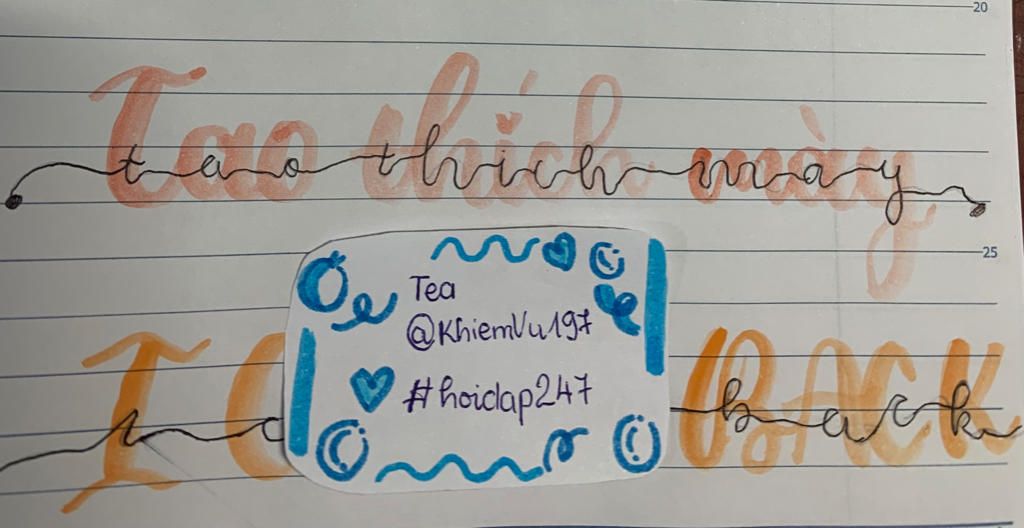 20
Tao thích mày
tao thich may
25
Tea
@KhiemVu197
#hoidap247
I C BACK
back